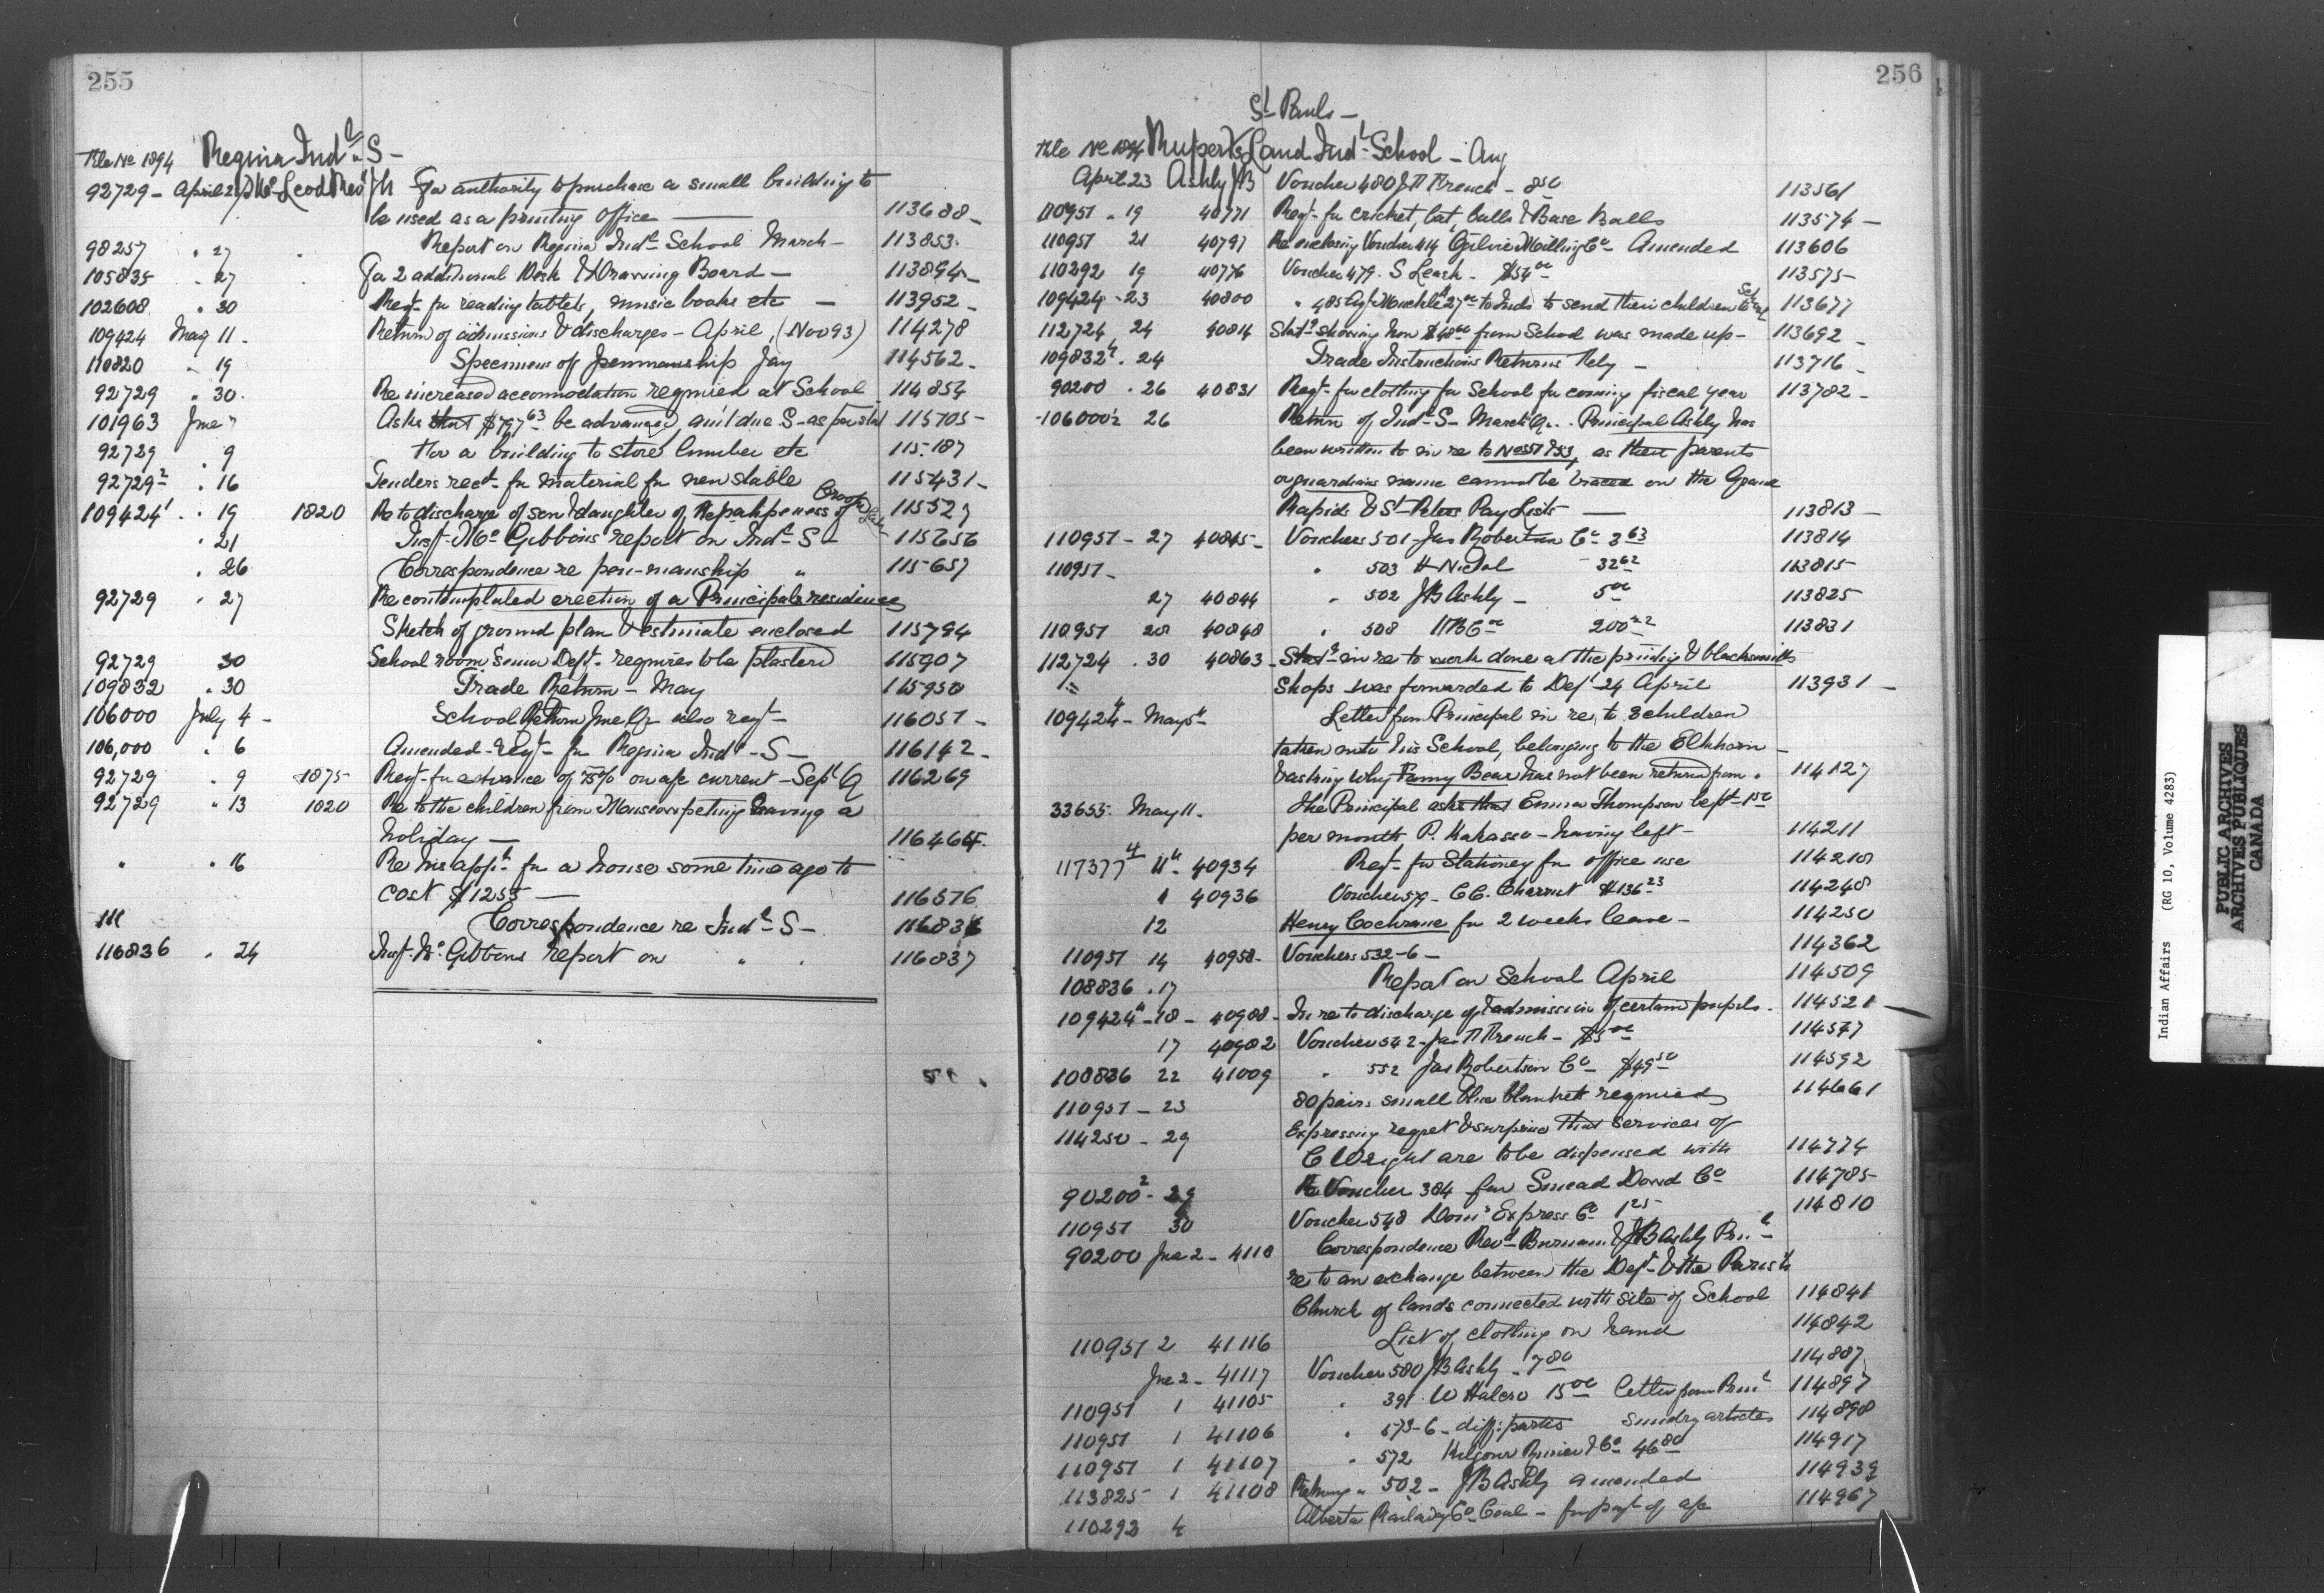 255
Regina Ind'l S-
File No 1894
92729 - April 21 McLeod Rev J A For authority to purchase a small building to
be used as a printing office 113688
98257 " 27 Report on Regina Ind'l School March - 113853
105835 " 27 For 2 additional Desk & Drawing Board - 113894
102608 " 30 Reqt for reading tablets, music books etc - 113952
109424 May 11 - Return of admissions & discharges - April, (Nov 93) 114278
110820 " 19 Specimens of penmanship Jay 114562
92729 " 30 Re increased accommodation required at School 114854
101963 June 7 Asks that $797 63 be advanced, am't due S- as per stat 115105
92729 " 9 For a building to store lumber etc 115187
92729 2 " 16 Tenders rect for material for new stable 115431
109424 1 " 19 1820 Re to discharge of son & daughter of 11552
" 21 Insp. McGibbons report on Ind'l S- 115656
" 26 Correspondence re pen-manship " 115657
92729 " 27 Re contemplated erection of a Principals residence
Sketch of ground plan & estimate enclosed 115794
92729 30 School room Senior Dept. requires to be plastered 115907
109832 " 30 Trade Return - May 115950
106000 July 4 - School Return June Qr also reqt 116051
106,000 " 6 Amended - Reqt - for Regina Ind'l - S - 116142
92729 " 9 1875 Reqt for advance of 75% on a/c current - Sept Q 116269
92729 " 13 1820 Re to the children from having a
holiday - 116464
" " 16 Re his app'n for a house some time ago to
cost $1255 - 116576
Correspondence re Ind'l S - 116836
116836 " 24 Insp. McGibbons report on " " 116837
256
St Pauls -
File No 1894 Ruperts Land Ind'l School - Aug
April 23 Ashby JB Voucher 480 J H French - 8 50 113561
110951 " 19 40771 Reqt for cricket, bat, balls & Base Balls 113574
110951 21 40797 Re enclosing Voucher 414 Ogilvie Milling Co Amended 113606
110292 19 40776 Voucher 479 - S Leash - $54 00 113575
109424 - 23 40800 " 485 27 00 to Inds to send their children to Scl 113677
112724 24 40814 Stat showing how $48 00 from School was made up - 113692
109832 " 24 Trade Instructions Returns Rely - 113716
90200 " 26 40831 Reqt for clothing for School for coming fiscal year 113782
106000 26 Return of Ind'l S- March Qr. - Principal Ashby has
been written to in re to Nos 51 & 53, as their parents
or guardians name cannot be traced on the Grand
Rapids & St Peters Pay Lists - 113813
110951 - 27 40845 - Vouchers 501 - Jas Robertson Co 3 63 113814
110951 - " 503 H Nicol 32 62 113815
27 40844 " 502 JB Ashby - 5 00 113825
110951 28 40848 " 508 HBCo 200 113831
112724 " 30 40863 - Stat in re to work done at the printing & blacksmiths
Shops was forwarded to Dept 24 April 113931
109424 - May 5 Letter from Principal in re to 3 children
taken into his School, belonging to the Elkhorn -
& asking why Fanny Bear has not been returned from " 114127
33655 - May 11. The Principal asks that Emma Thompson left 1 50
per month P. Kakasoo - having left - 114211
117377 11 - 40934 Reqt for Stationery for office use 114210
" 40936 Voucher 579 - C C. $136 23 114248
12 Henry Cochrane for 2 weeks leave - 114250
110951 14 40958 - Vouchers 532-6 - 114362
108836 " 17 Report on School April 114509
109424 - 18 - 40988 - In re to discharge of & admission of certain pupils - 114521
17 40982 Voucher 542 - Jas H French - $5 00 114547
108836 22 41009 " 552 Jas Robertson Co $49 50 114592
110951 - 23 80 pairs small blue blankets required 114661
114250 - 29 Expressing regret & surprise that services of
C Wright are to be dispensed with 114774
90200 2 - 29 Re Voucher 384 for Smead Dowd Co 114785
110951 30 Voucher 548 Dom'n Express Co 1 25 114810
90200 June 2 - 4118 Correspondence Rev'd Burman & JB Ashby Prin'l
re to an exchange between the Dept. & the Parish
Church of lands connected with site of School 114841
110951 2 41116 List of clothing on hand 114842
June 2 - 41117 Voucher 580 JB Ashby - 7 80 114887
110951 1 41105 " 391 W Halcro 15 00 Letter from Prin'l 114897
110951 1 41106 " 573-6 - diff: parties Sundry articles 114898
110951 1 41107 " 572 Kilgour Rimer & Co 46 80 114917
113825 1 41108 Returning " 502 - JB Ashby amended 114939
110292 4 Alberta Railway Co Coal - for payt of a/c 114967
Indian Affairs (RG 10, Volume 4283)
PUBLIC ARCHIVES
ARCHIVES PUBLIQUES
CANADA